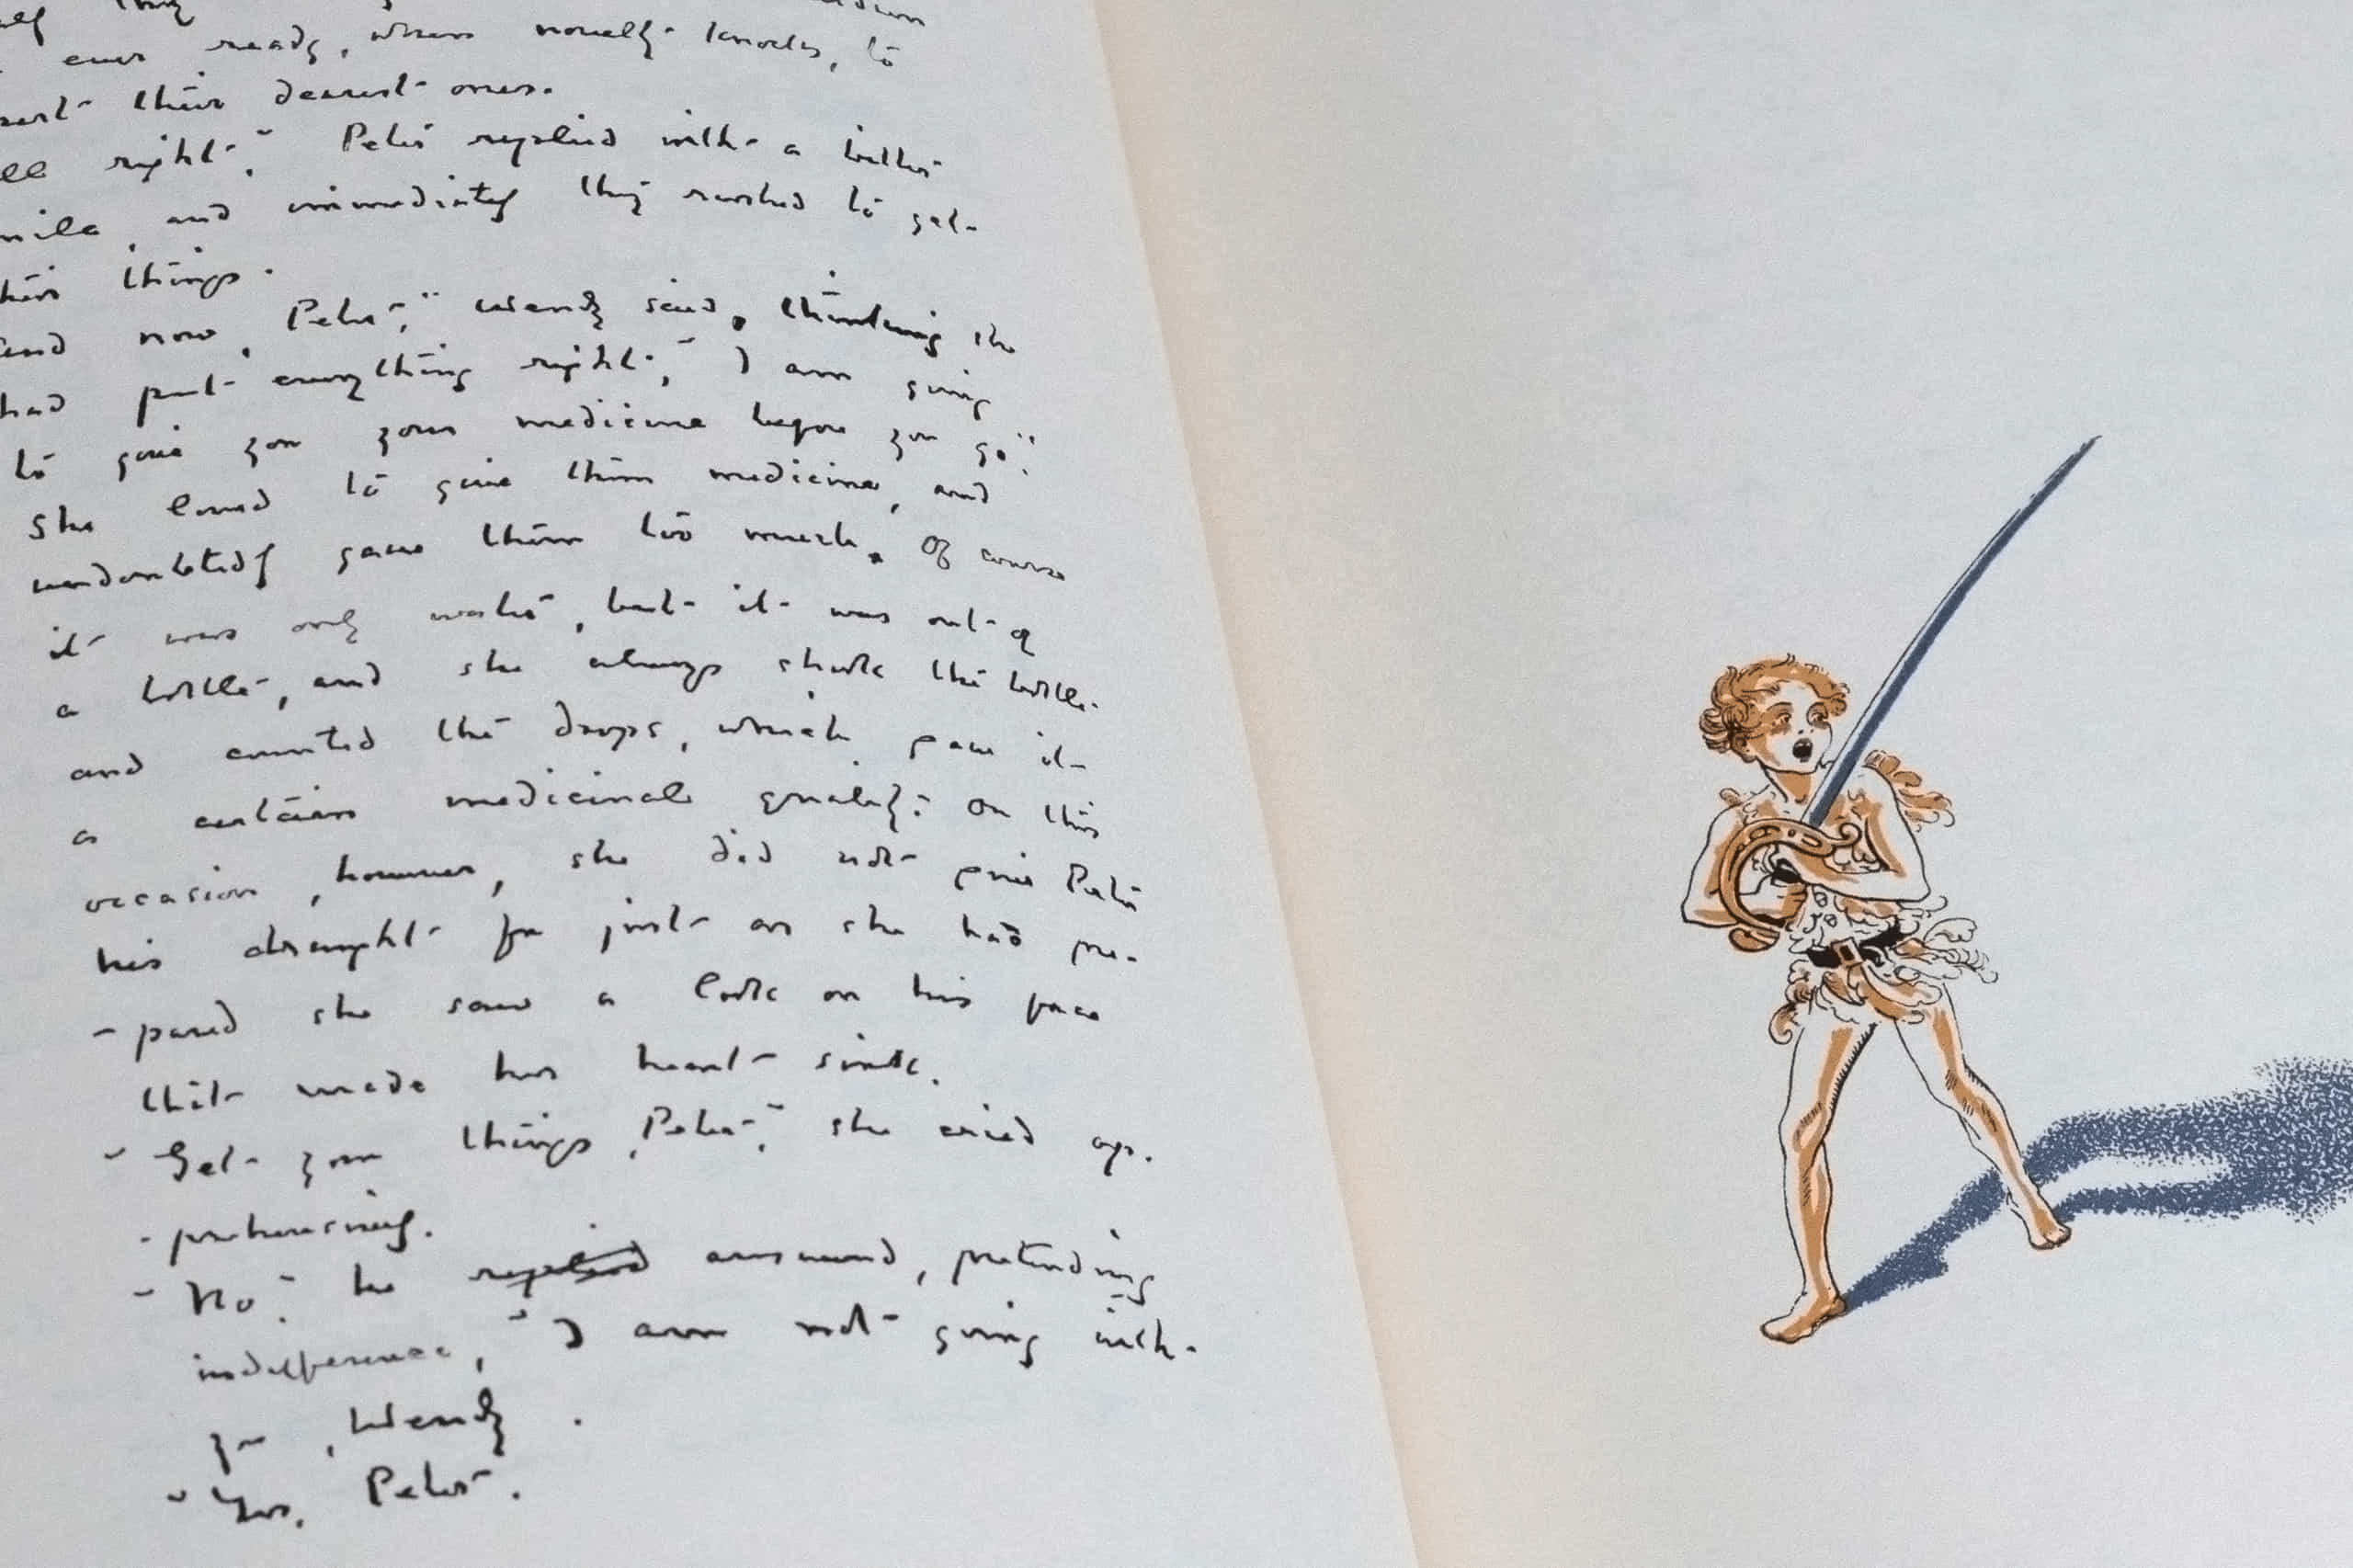 ever ready, when novelty knocks, to
their dearest ones.
right," Peter replied with a bitter
and immediately they rushed to get
things.
now, Peter," Wendy said, thinking she
had put everything right, "I am going
to give you your medicine before you go."
She loved to give them medicine, and
undoubtedly gave them too much. Of course
it was only water, but it was out of
a bottle, and she always shook the bottle
and counted the drops, which gave it
a certain medicinal quality. On this
occasion, however, she did not give Peter
his draught for just as she had pre-
-pared she saw a look on his face
that made her heart sink.
"Get your things, Peter," she cried
"No," he replied answered, pretending
indifference, "I am not going with
you, Wendy.
"Yes, Peter".